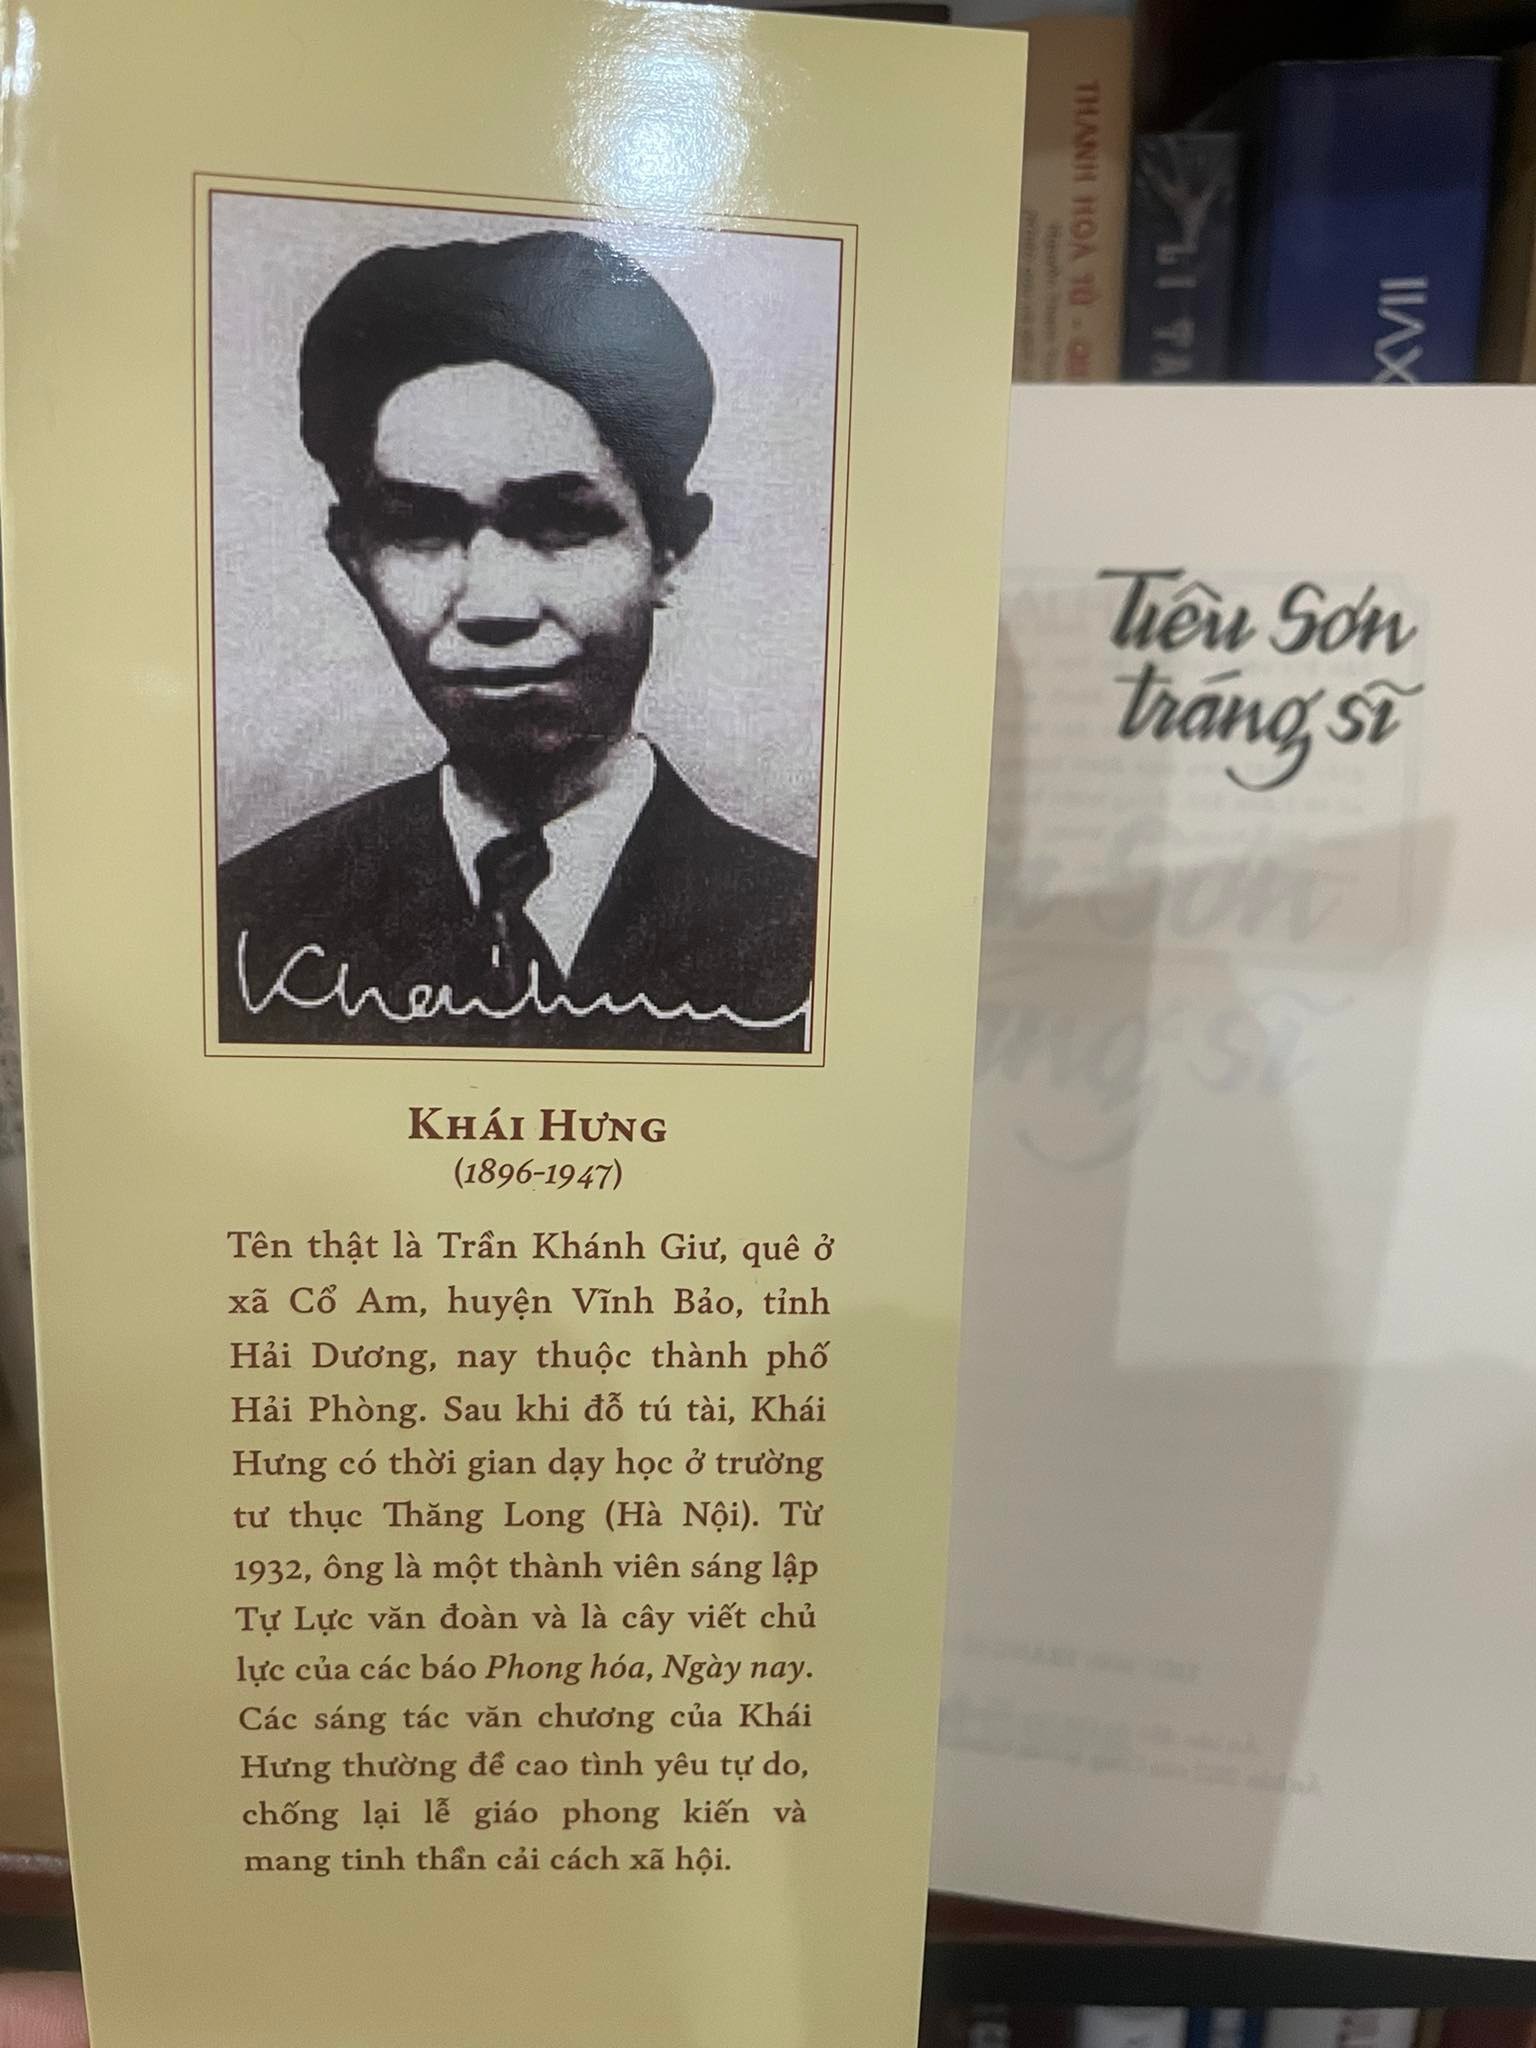 Khaihưng
KHÁI HƯNG
(1896-1947)
Tên thật là Trần Khánh Giư, quê ở
xã Cổ Am, huyện Vĩnh Bảo, tỉnh
Hải Dương, nay thuộc thành phố
Hải Phòng. Sau khi đỗ tú tài, Khái
Hưng có thời gian dạy học ở trường
tư thục Thăng Long (Hà Nội). Từ
1932, ông là một thành viên sáng lập
Tự Lực văn đoàn và là cây viết chủ
lực của các báo Phong hóa, Ngày nay.
Các sáng tác văn chương của Khái
Hưng thường đề cao tình yêu tự do,
chống lại lễ giáo phong kiến và
mang tinh thần cải cách xã hội.
Tiêu Sơn
tráng sĩ
THANH HOA TỬ -
XVII